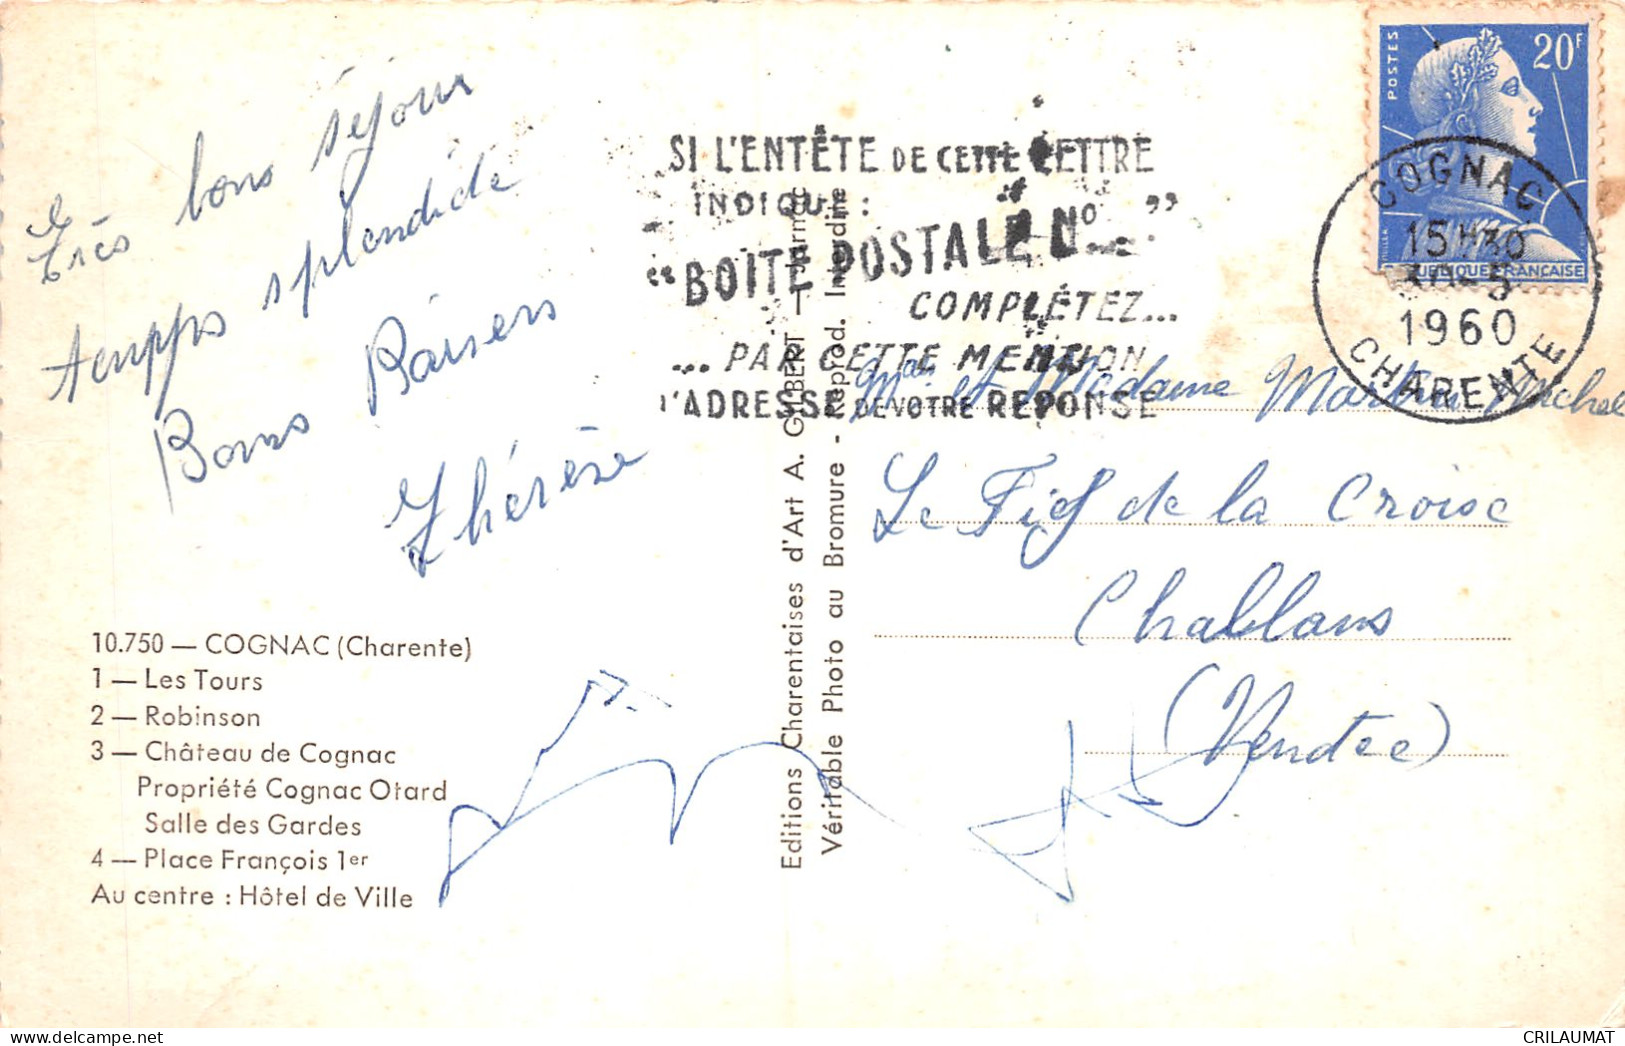 Très bons séjour
temps splendide
Bons Baisers
Thérèse
10.750 — COGNAC (Charente)
1 — Les Tours
2 — Robinson
3 — Château de Cognac
Propriété Cognac Otard
Salle des Gardes
4 — Place François 1er
Au centre : Hôtel de Ville
Editions Charentaises d'Art A. GILBERT - Jarnac
Véritable Photo au Bromure - Reprod. Interdite
SI L'ENTÊTE DE CETTE LETTRE
INDIQUE :
“BOITE POSTALE No ... ”
COMPLÉTEZ...
... PAR CETTE MENTION
L'ADRESSE DE VOTRE REPONSE
POSTES
20F
REPUBLIQUE FRANÇAISE
COGNAC
15H30
1960
CHARENTE
et Madame Martin Michel
Le Fief de la Croise
Challans
(Vendée)
CRILAUMAT